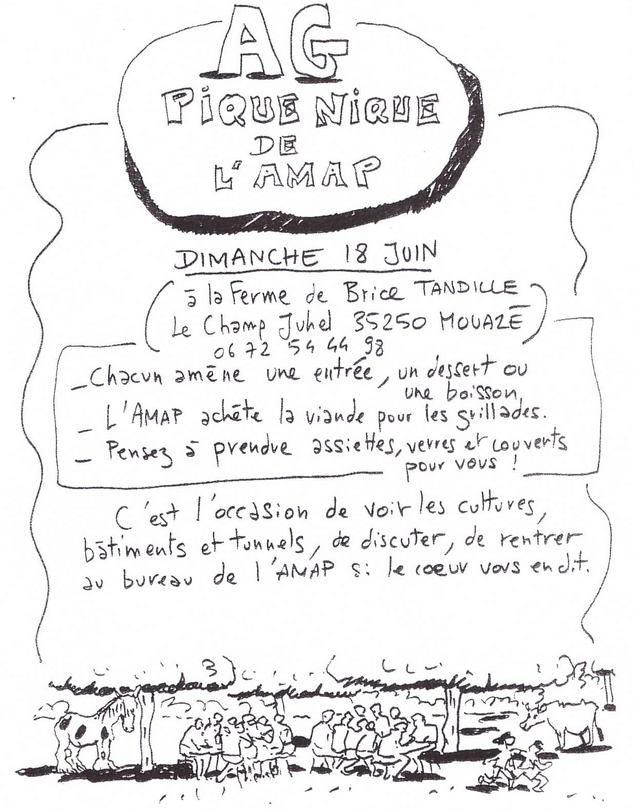 AG
PiQUE NiQUE
DE
L'AMAP
DIMANCHE 18 JUIN
(à la Ferme de Brice TANDILLE
Le Champ Juhel 35250 MOUAZÉ)
06 72 54 44 98
_Chacun amène une entrée, un dessert ou
une boisson,
_ L'AMAP achète la viande pour les grillades.
_ Pensez à prendre assiettes, verres et couverts
pour vous !
C'est l'occasion de voir les cultures,
bâtiments et tunnels, de discuter, de rentrer
au bureau de l'AMAP si le cœur vous en dit.